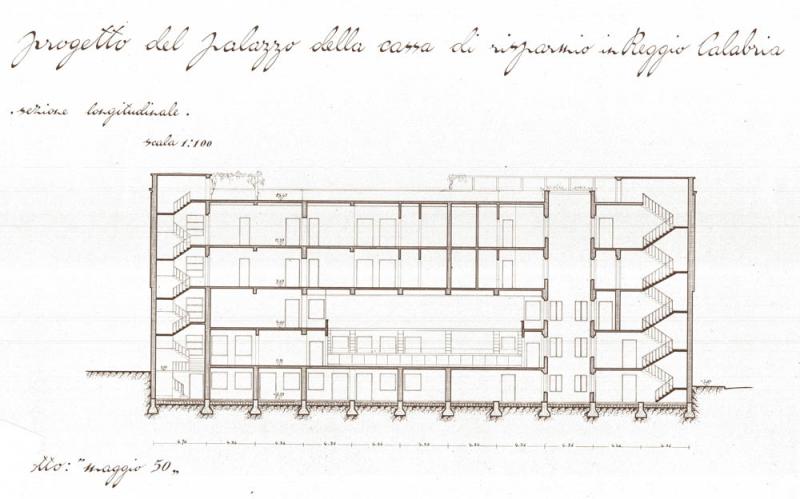 progetto del palazzo della cassa di risparmio in Reggio Calabria
. sezione longitudinale .
scala 1:100
Mto: "maggio 50„